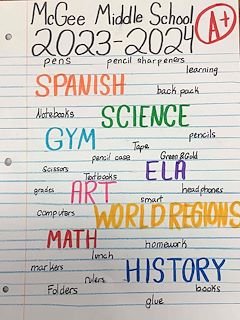 McGee Middle School
A+
2023-2024
pens pencil sharpeners
learning
SPANISH
back pack
Notebooks
SCIENCE
GYM
pencils
Tape
pencil case Green & Gold
scissors
ELA
Textbooks
grades
ART
headphones
smart
computers
WORLD REGIONS
MATH
homework
lunch
markers
HISTORY
rulers
Folders
books
glue